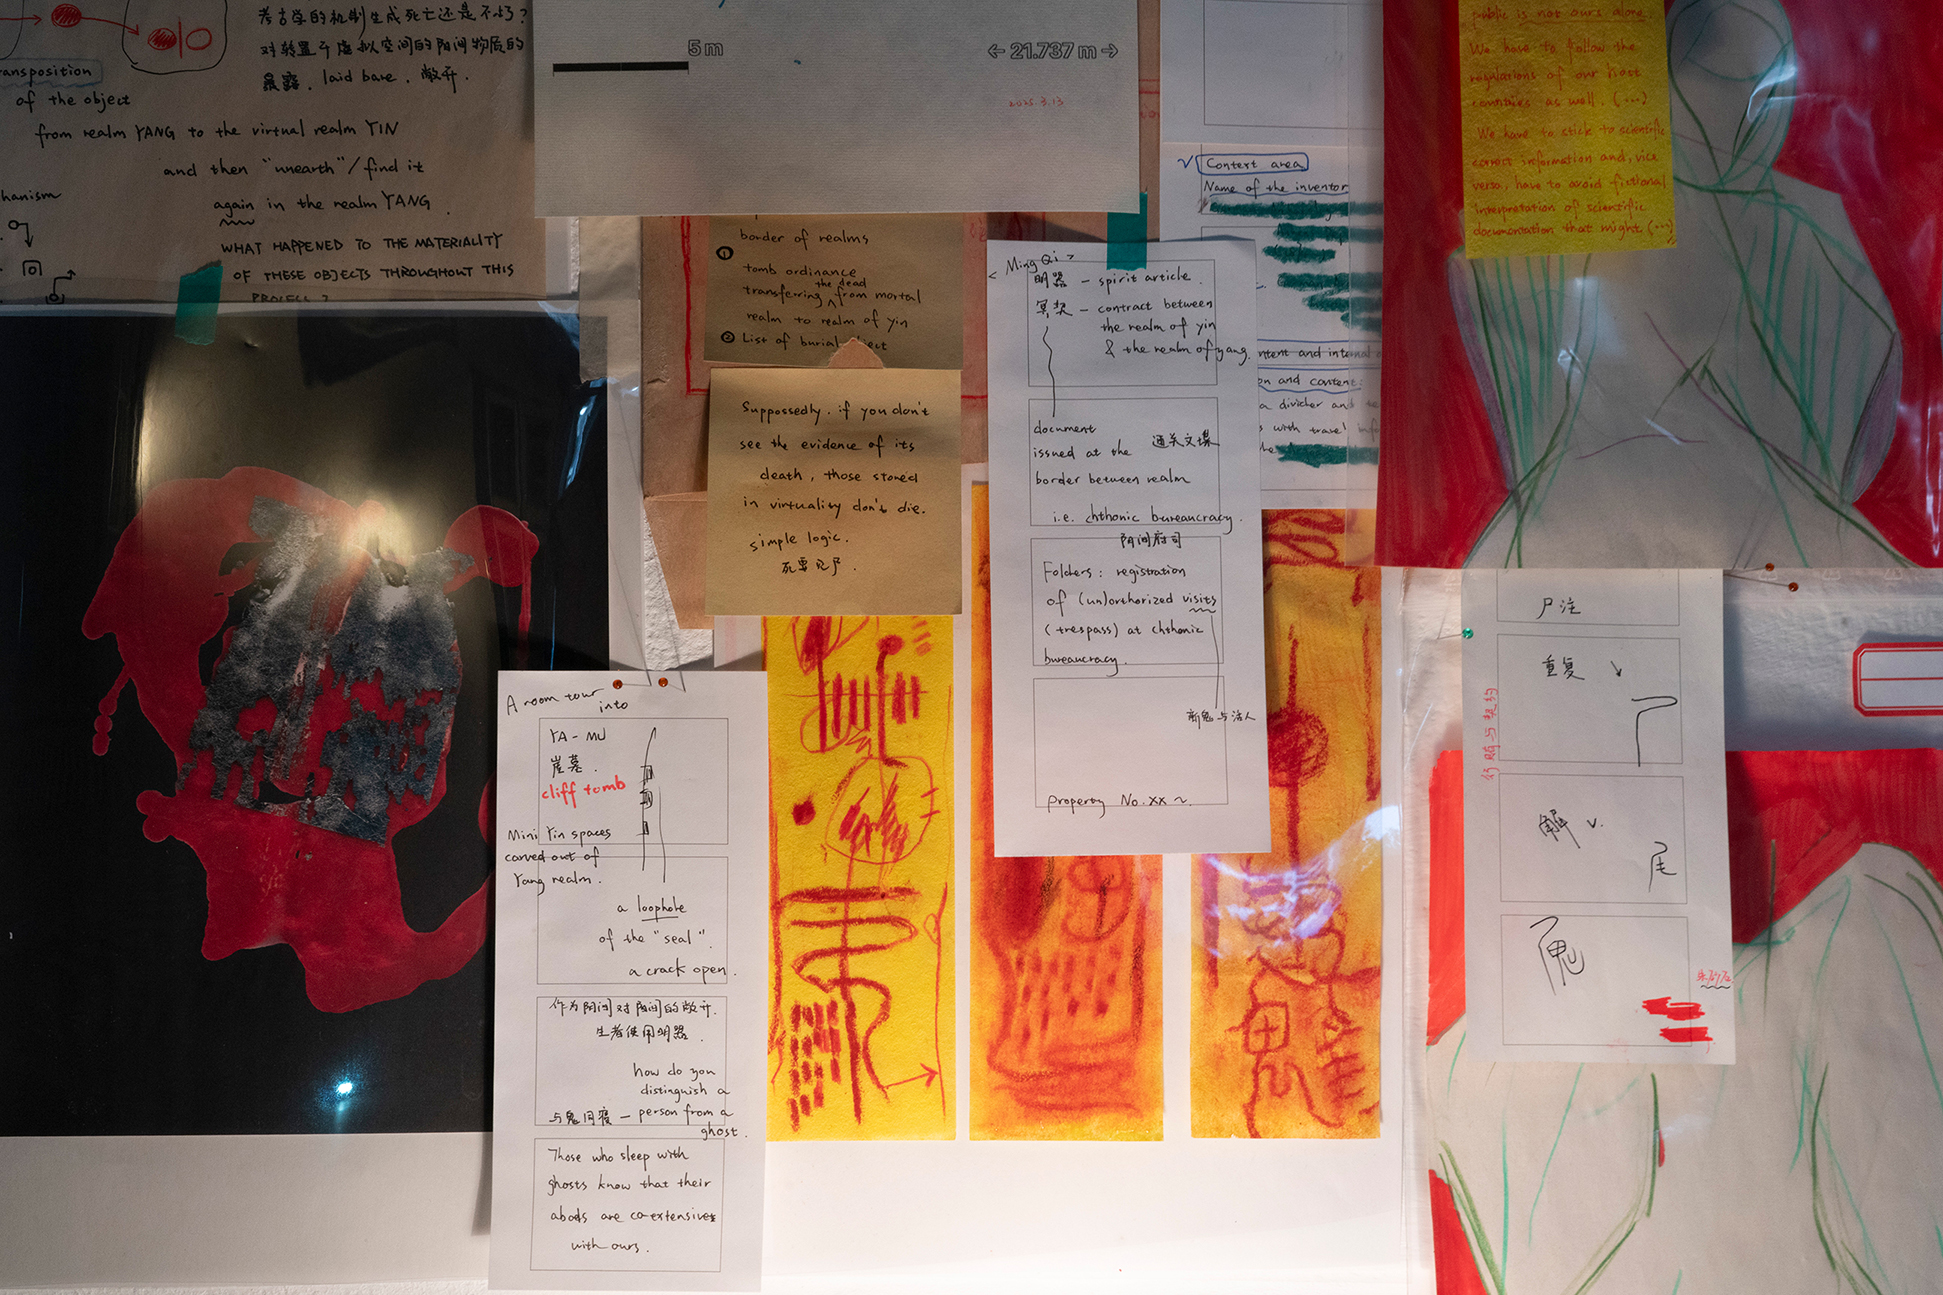 考古学的机制生成死亡还是不朽?
对转置于虚拟空间的阴间物质的
暴露. laid bare. 敞开.
ansposition
of the object
from realm YANG to the virtual realm YIN
and then "unearth"/find it
again in the realm YANG.
hanism
WHAT HAPPENED TO THE MATERIALITY
OF THESE OBJECTS THROUGHOUT THIS
PROCESS?
5m
← 21.737 m →
2025.3.13
border of realms
① tomb ordinance
transferring the dead from mortal
realm to realm of yin
② List of burial object
Suppossedly, if you don't
see the evidence of its
death, those stored
in virtuality don't die.
simple logic.
死要见尸.
A room tour
into
YA-MU
崖墓.
cliff tomb
Mini Yin spaces
carved out of
Yang realm.
a loophole
of the "seal".
a crack open.
作为阴间对阳间的敞开.
生者使用明器.
how do you
distinguish a
与鬼同寝 — person from a
ghost.
Those who sleep with
ghosts know that their
abods are co-extensives
with ours.
< Ming Qi >
明器 — spirit article.
冥契 — contract between
the realm of yin
& the realm of yang.
document
issued at the 通关文牒
border between realm
i.e. chthonic bureaucracy.
阴间府司
Folders: registration
of (un)orthorized visits
(trespass) at chthonic
bureaucracy.
新鬼与活人
Property No. xx ~.
Content area
Name of the inventor
ntent and internal
on and content:
a divider and
s with travel
public is not ours alone
We have to follow the
regulations of our host
countries as well. (...)
We have to stick to scientific
correct information and, vice
versa, have to avoid fictional
interpretation of scientific
documentation that might (...)
尸注
重复
解 v.
鬼